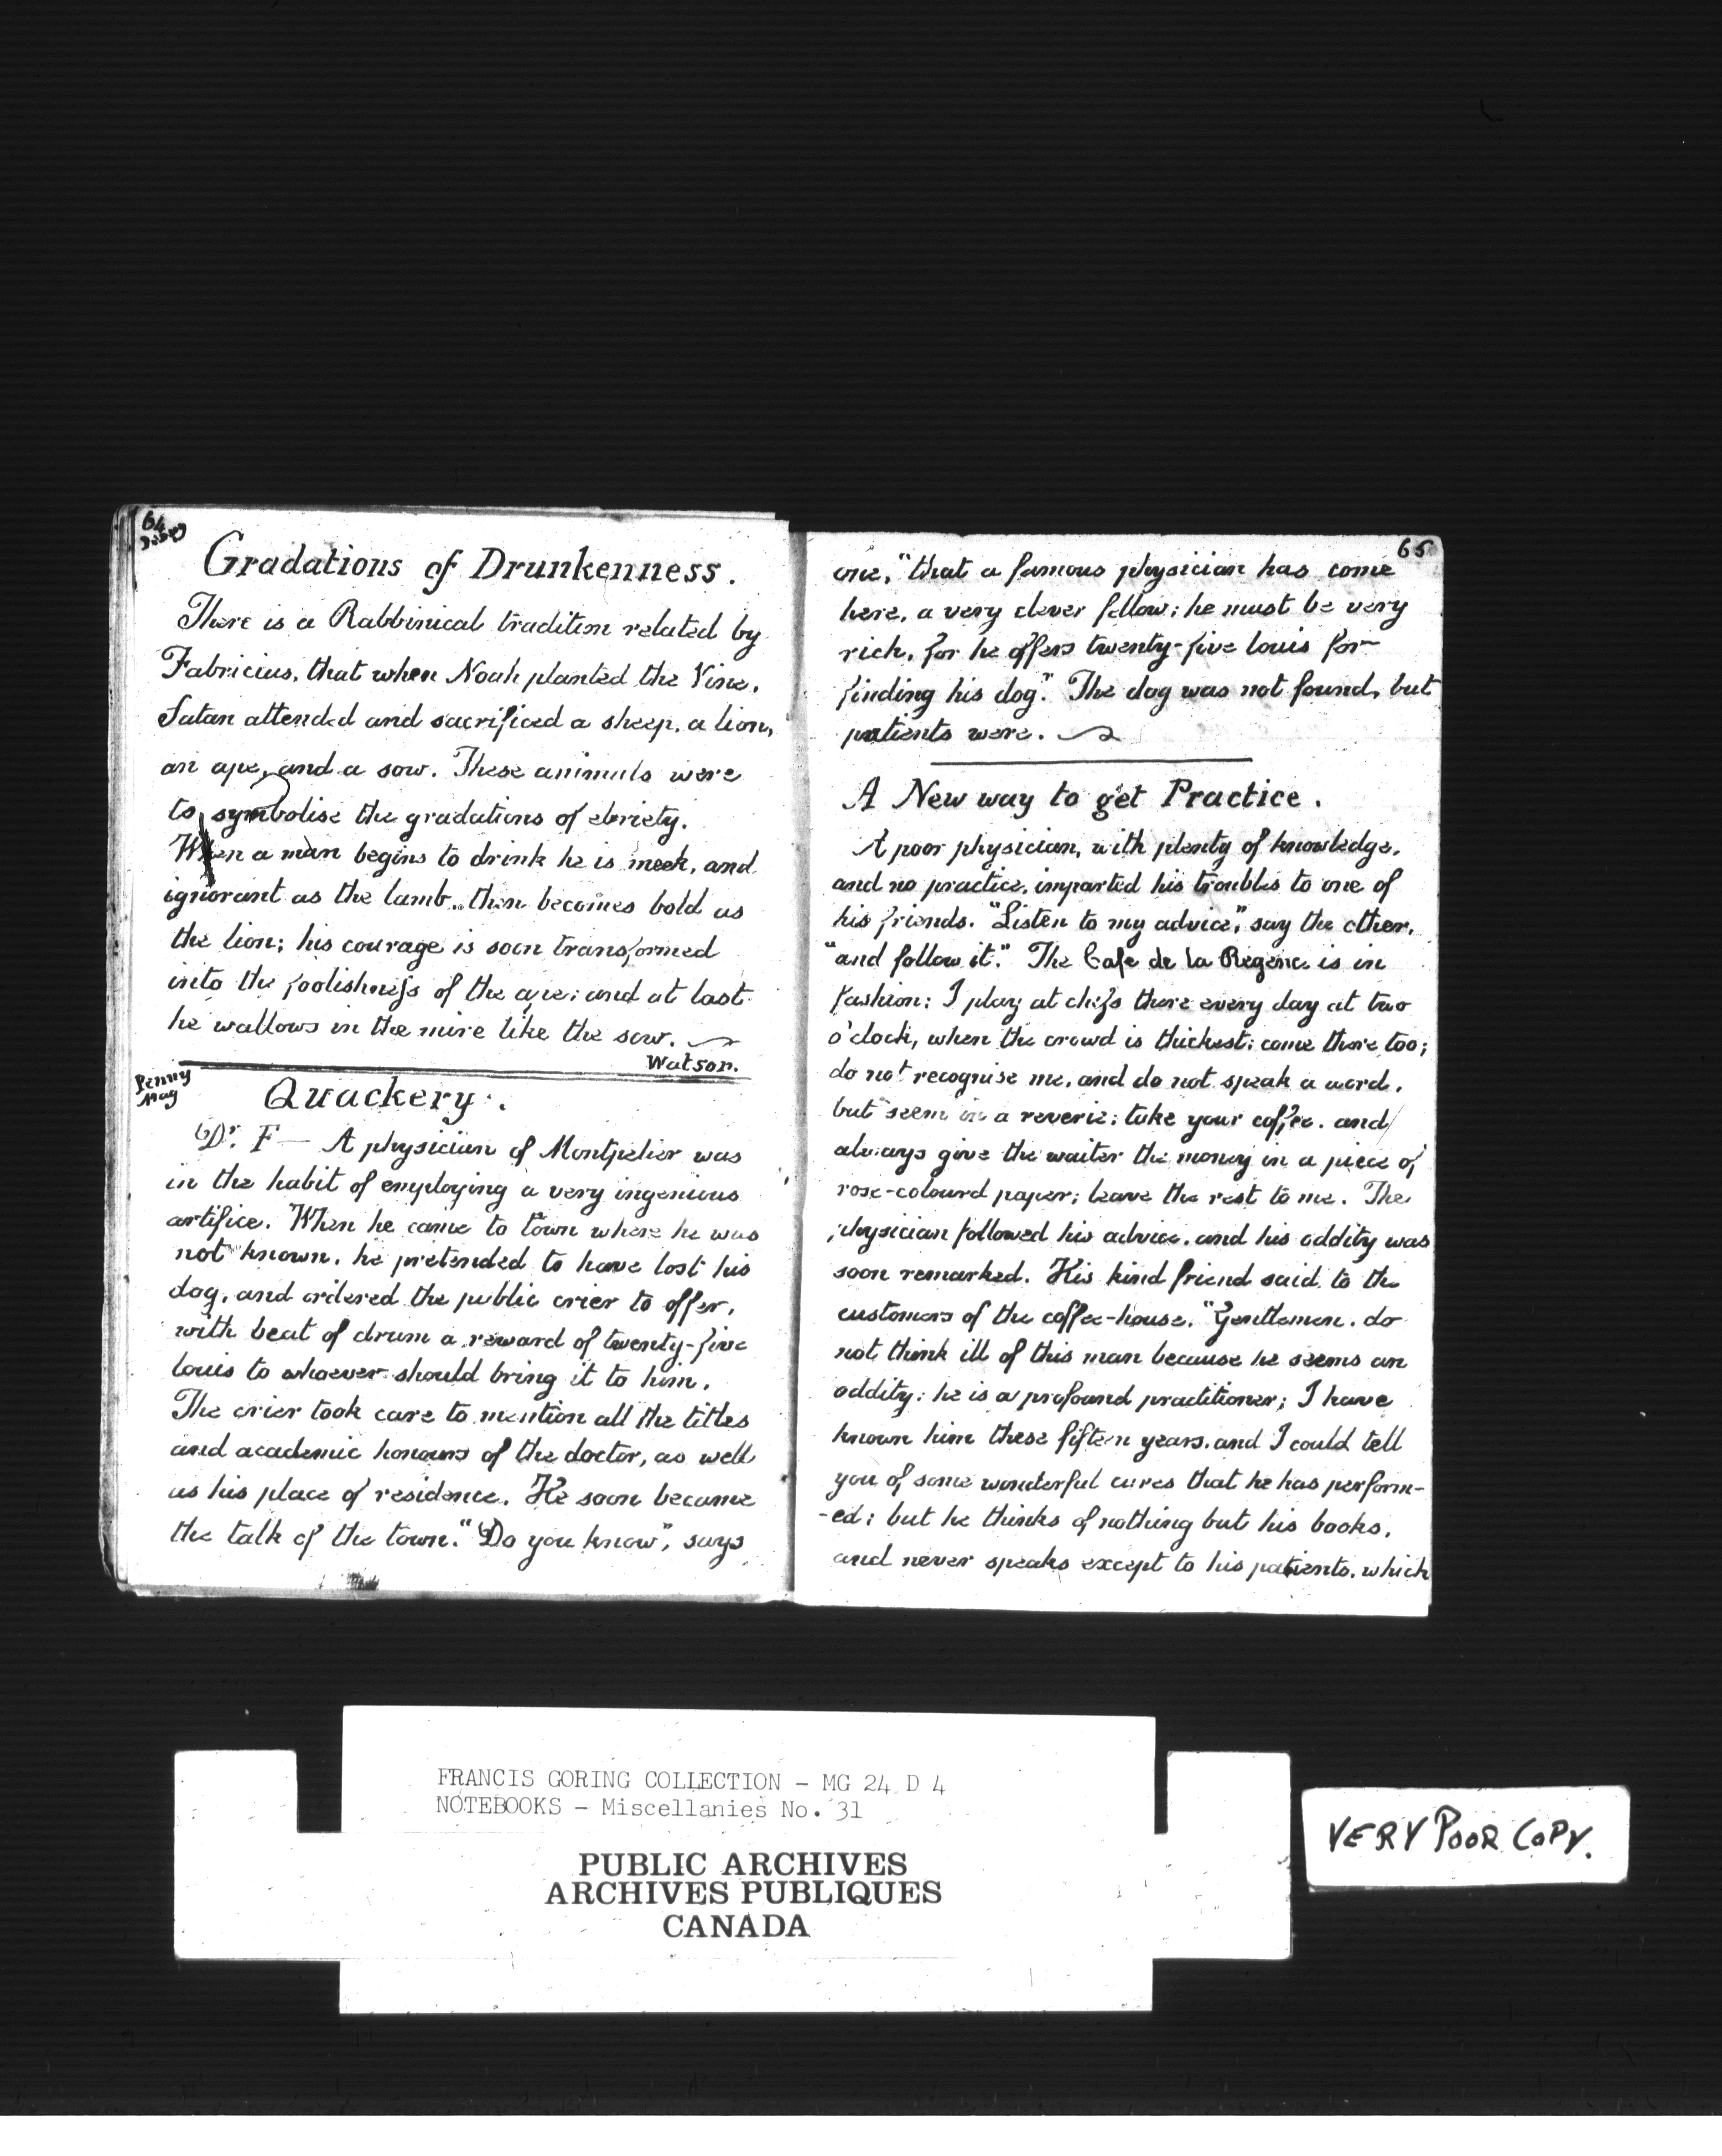 64
Gradations of Drunkenness.
There is a Rabbinical tradition related by
Fabricius, that when Noah planted the Vine,
Satan attended and sacrificed a sheep, a lion,
an ape, and a sow. These animals were
to symbolise the gradations of ebriety.
When a man begins to drink he is meek, and
ignorant as the lamb.. then becomes bold as
the lion; his courage is soon transformed
into the foolishness of the ape; and at last
he wallows in the mire like the sow.
Watson.
Penny
Mag
Quackery.
Dr. F— A physician of Montpelier was
in the habit of employing a very ingenious
artifice. When he came to town where he was
not known, he pretended to have lost his
dog, and ordered the public crier to offer,
with beat of drum a reward of twenty-five
louis to whoever should bring it to him.
The crier took care to mention all the titles
and academic honours of the doctor, as well
as his place of residence. He soon became
the talk of the town. "Do you know", says
65
one, "that a famous physician has come
here, a very clever fellow; he must be very
rich, for he offers twenty-five louis for
finding his dog." The dog was not found, but
patients were.
A New way to get Practice.
A poor physician, with plenty of knowledge,
and no practice, imparted his troubles to one of
his friends. "Listen to my advice," say the other,
"and follow it." The Cafe de la Regence is in
fashion: I play at chess there every day at two
o'clock, when the crowd is thickest: come there too;
do not recognise me, and do not speak a word,
but seem in a reverie; take your coffee. and
always give the waiter the money in a piece of
rose-colourd paper; leave the rest to me. The
physician followed his advice, and his oddity was
soon remarked. His kind friend said to the
customers of the coffee-house. "Gentlemen, do
not think ill of this man because he seems an
oddity: he is a profound practitioner; I have
known him these fifteen years, and I could tell
you of some wonderful cures that he has perform-
-ed; but he thinks of nothing but his books,
and never speaks except to his patients, which
FRANCIS GORING COLLECTION - MG 24 D 4
NOTEBOOKS - Miscellanies No. 31
PUBLIC ARCHIVES
ARCHIVES PUBLIQUES
CANADA
VERY POOR COPY.